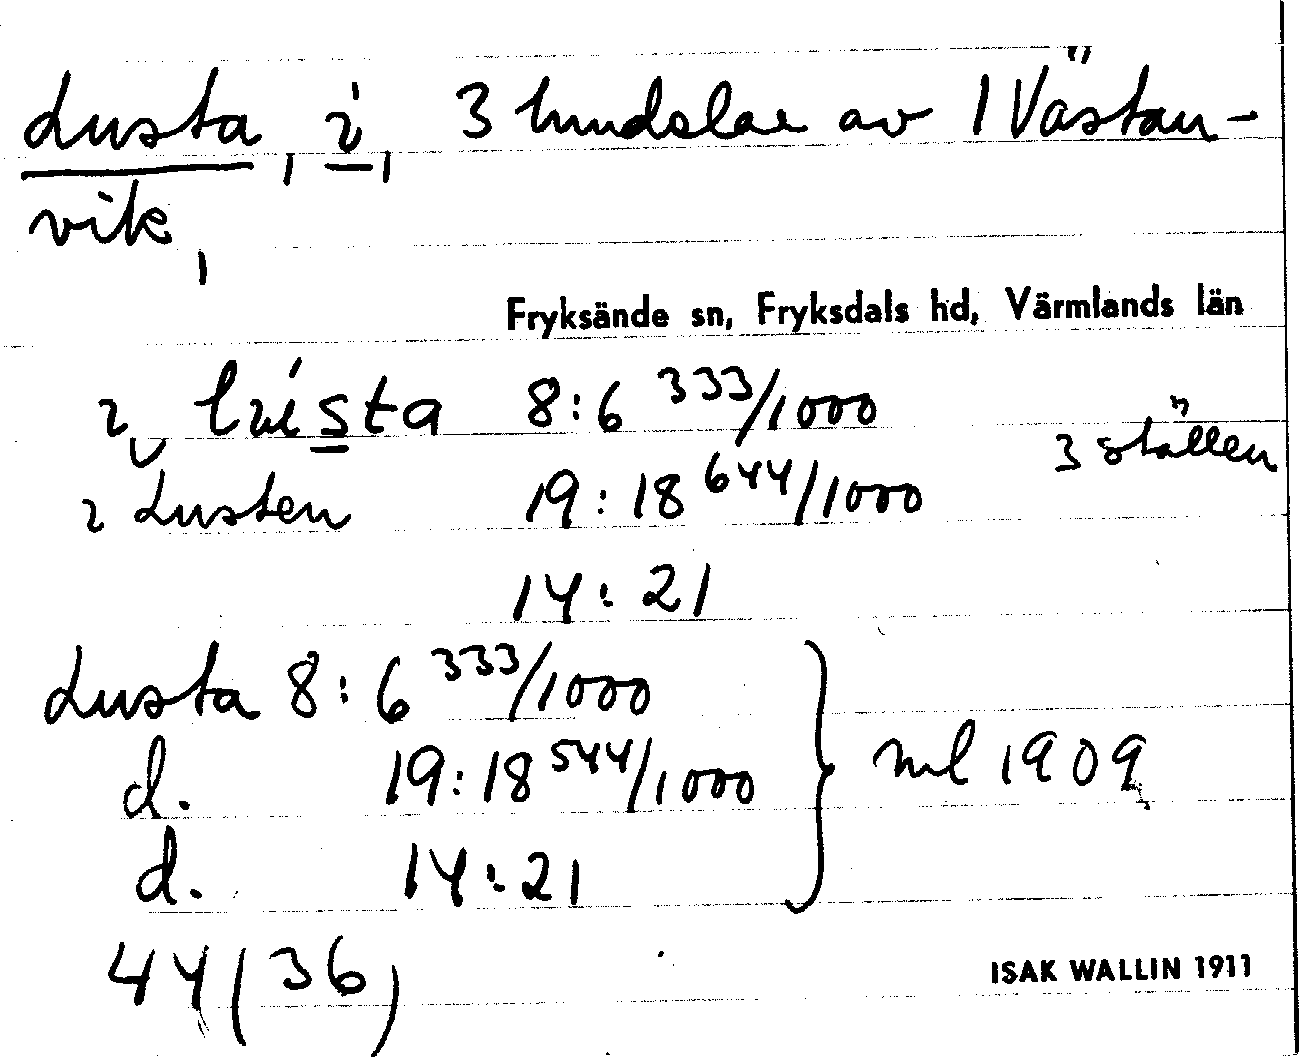 Lusta, i, 3 hmdelar av 1 Västan-
vik,
Fryksände sn, Fryksdals hd, Värmlands län
8:6 333/1000
3 ställen
i Lusten 19:18 644/1000
14:21
Lusta 8:6 333/1000
d. 19:18 544/1000
ml 1909
d. 14:21
44(36)
ISAK WALLIN 1911